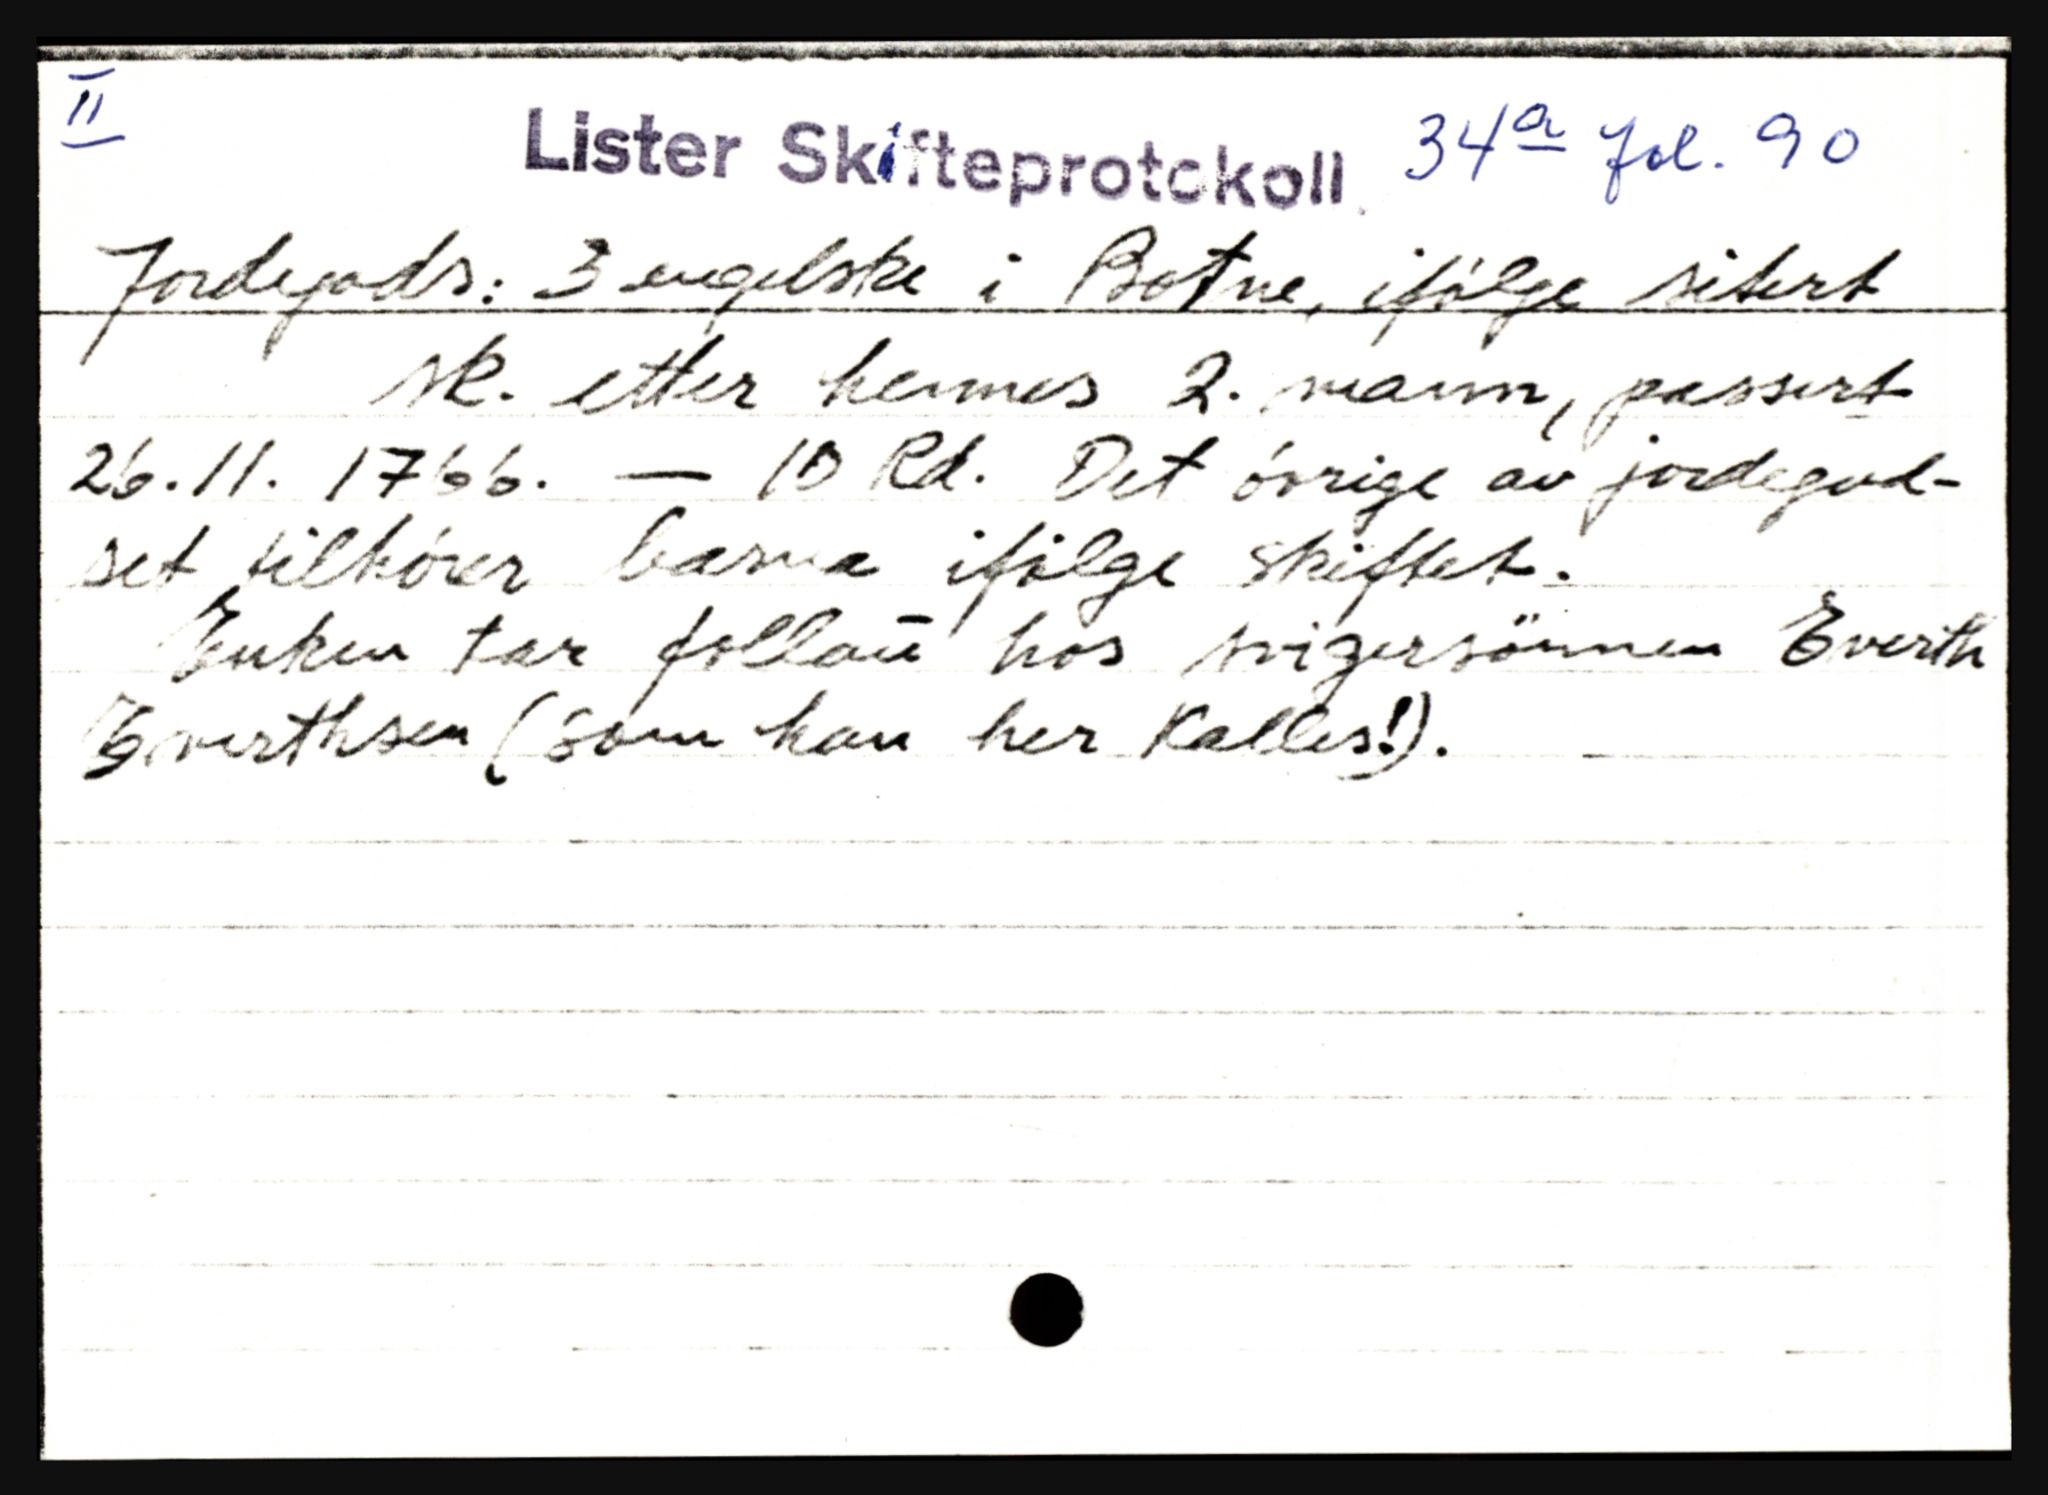 II
Lister Skifteprotokoll 34a fol. 90
Jordegods: 3 engelske i Botne, ifölge sitert
sk. etter hennes 2. mann, passert
26.11. 1766. — 10 Rd. Det övrige av jordegod-
set tilhörer barna ifölge skiftet.
Enken tar follaū hos svigersönnen Everth
Everthsen (som han her kalles!).